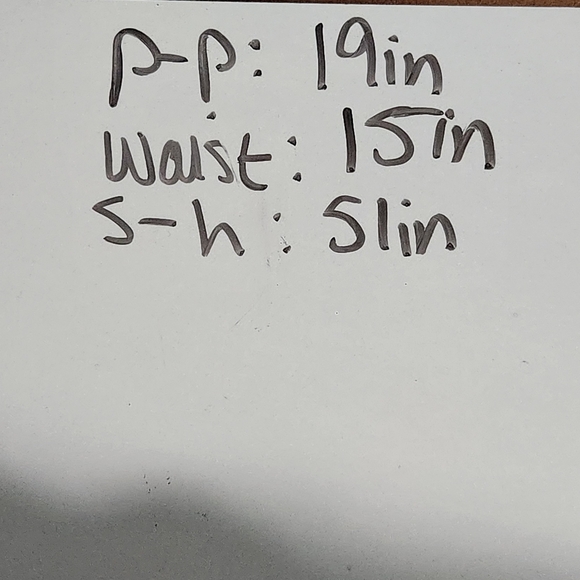 p-p: 19in
Waist: 15in
S-h: 51in